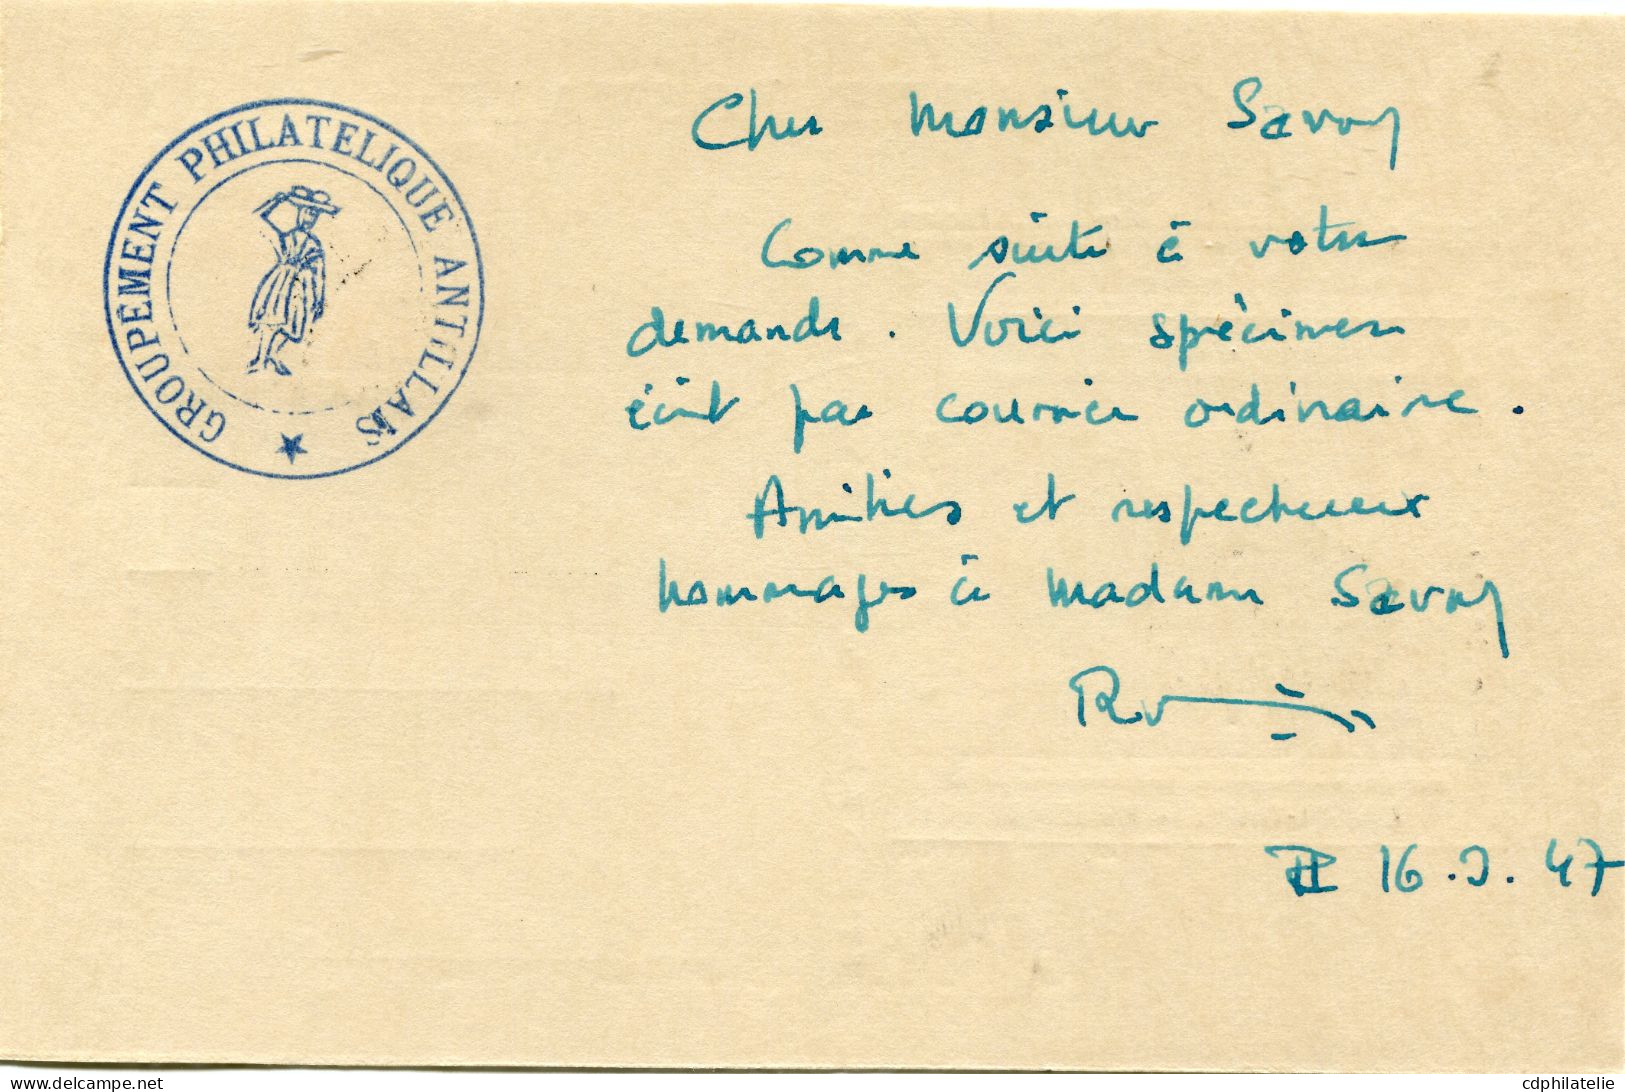 GROUPEMENT PHILATELIQUE ANTILLAIS
Cher Monsieur Savoy
Comme suite à votre
demande. Voici spécimen
écrit par courrier ordinaire.
Amitiés et respectueux
hommages à Madame Savoy
16.3.47
www.delcampe.net
cdphilatelie